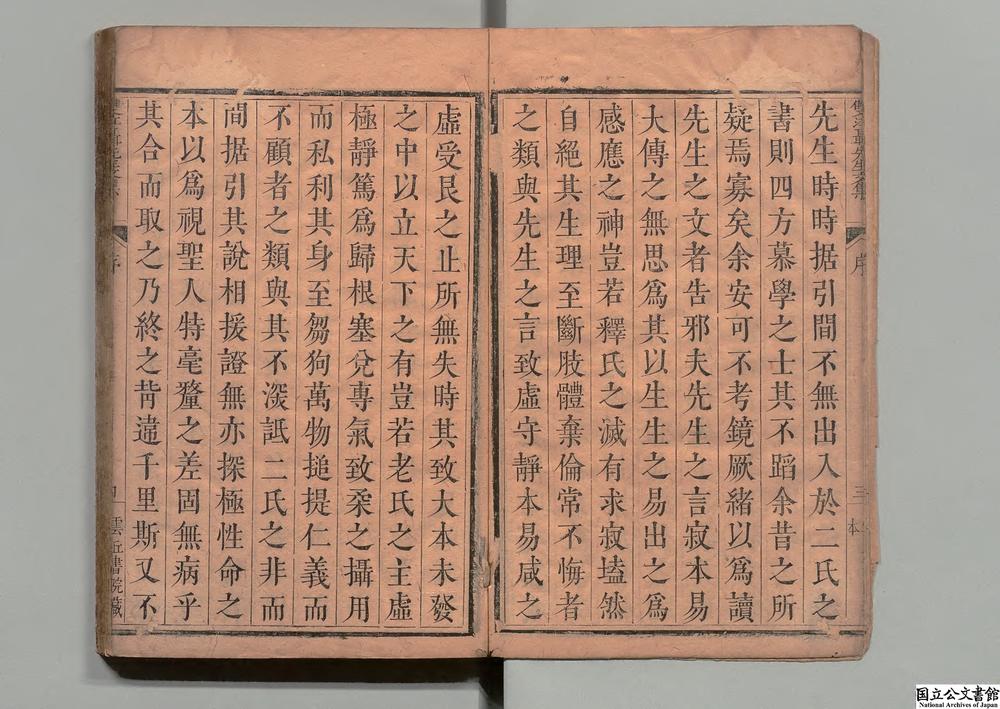 先生時時据引間不無出入於二氏之
書則四方慕學之士其不蹈余昔之所
疑焉寡矣余安可不考鏡厥緒以為讀
先生之文者告邪夫先生之言寂本易
大傳之無思為其以生生之易出之為
感應之神豈若釋氏之滅有求寂墖然
自絕其生理至斷肢體棄倫常不悔者
之類與先生之言致虛守靜本易咸之
虛受艮之止所無失時其致大本未發
之中以立天下之有豈若老氏之主虛
極靜篤為歸根塞兌專氣致柔之攝用
而私利其身至芻狗萬物搥提仁義而
不顧者之類與其不深詆二氏之非而
間据引其說相援證無亦探極性命之
本以為視聖人特毫釐之差固無病乎
其合而取之乃終之背違千里斯又不
序
三
序
雲丘書院藏
国立公文書館
National Archives of Japan